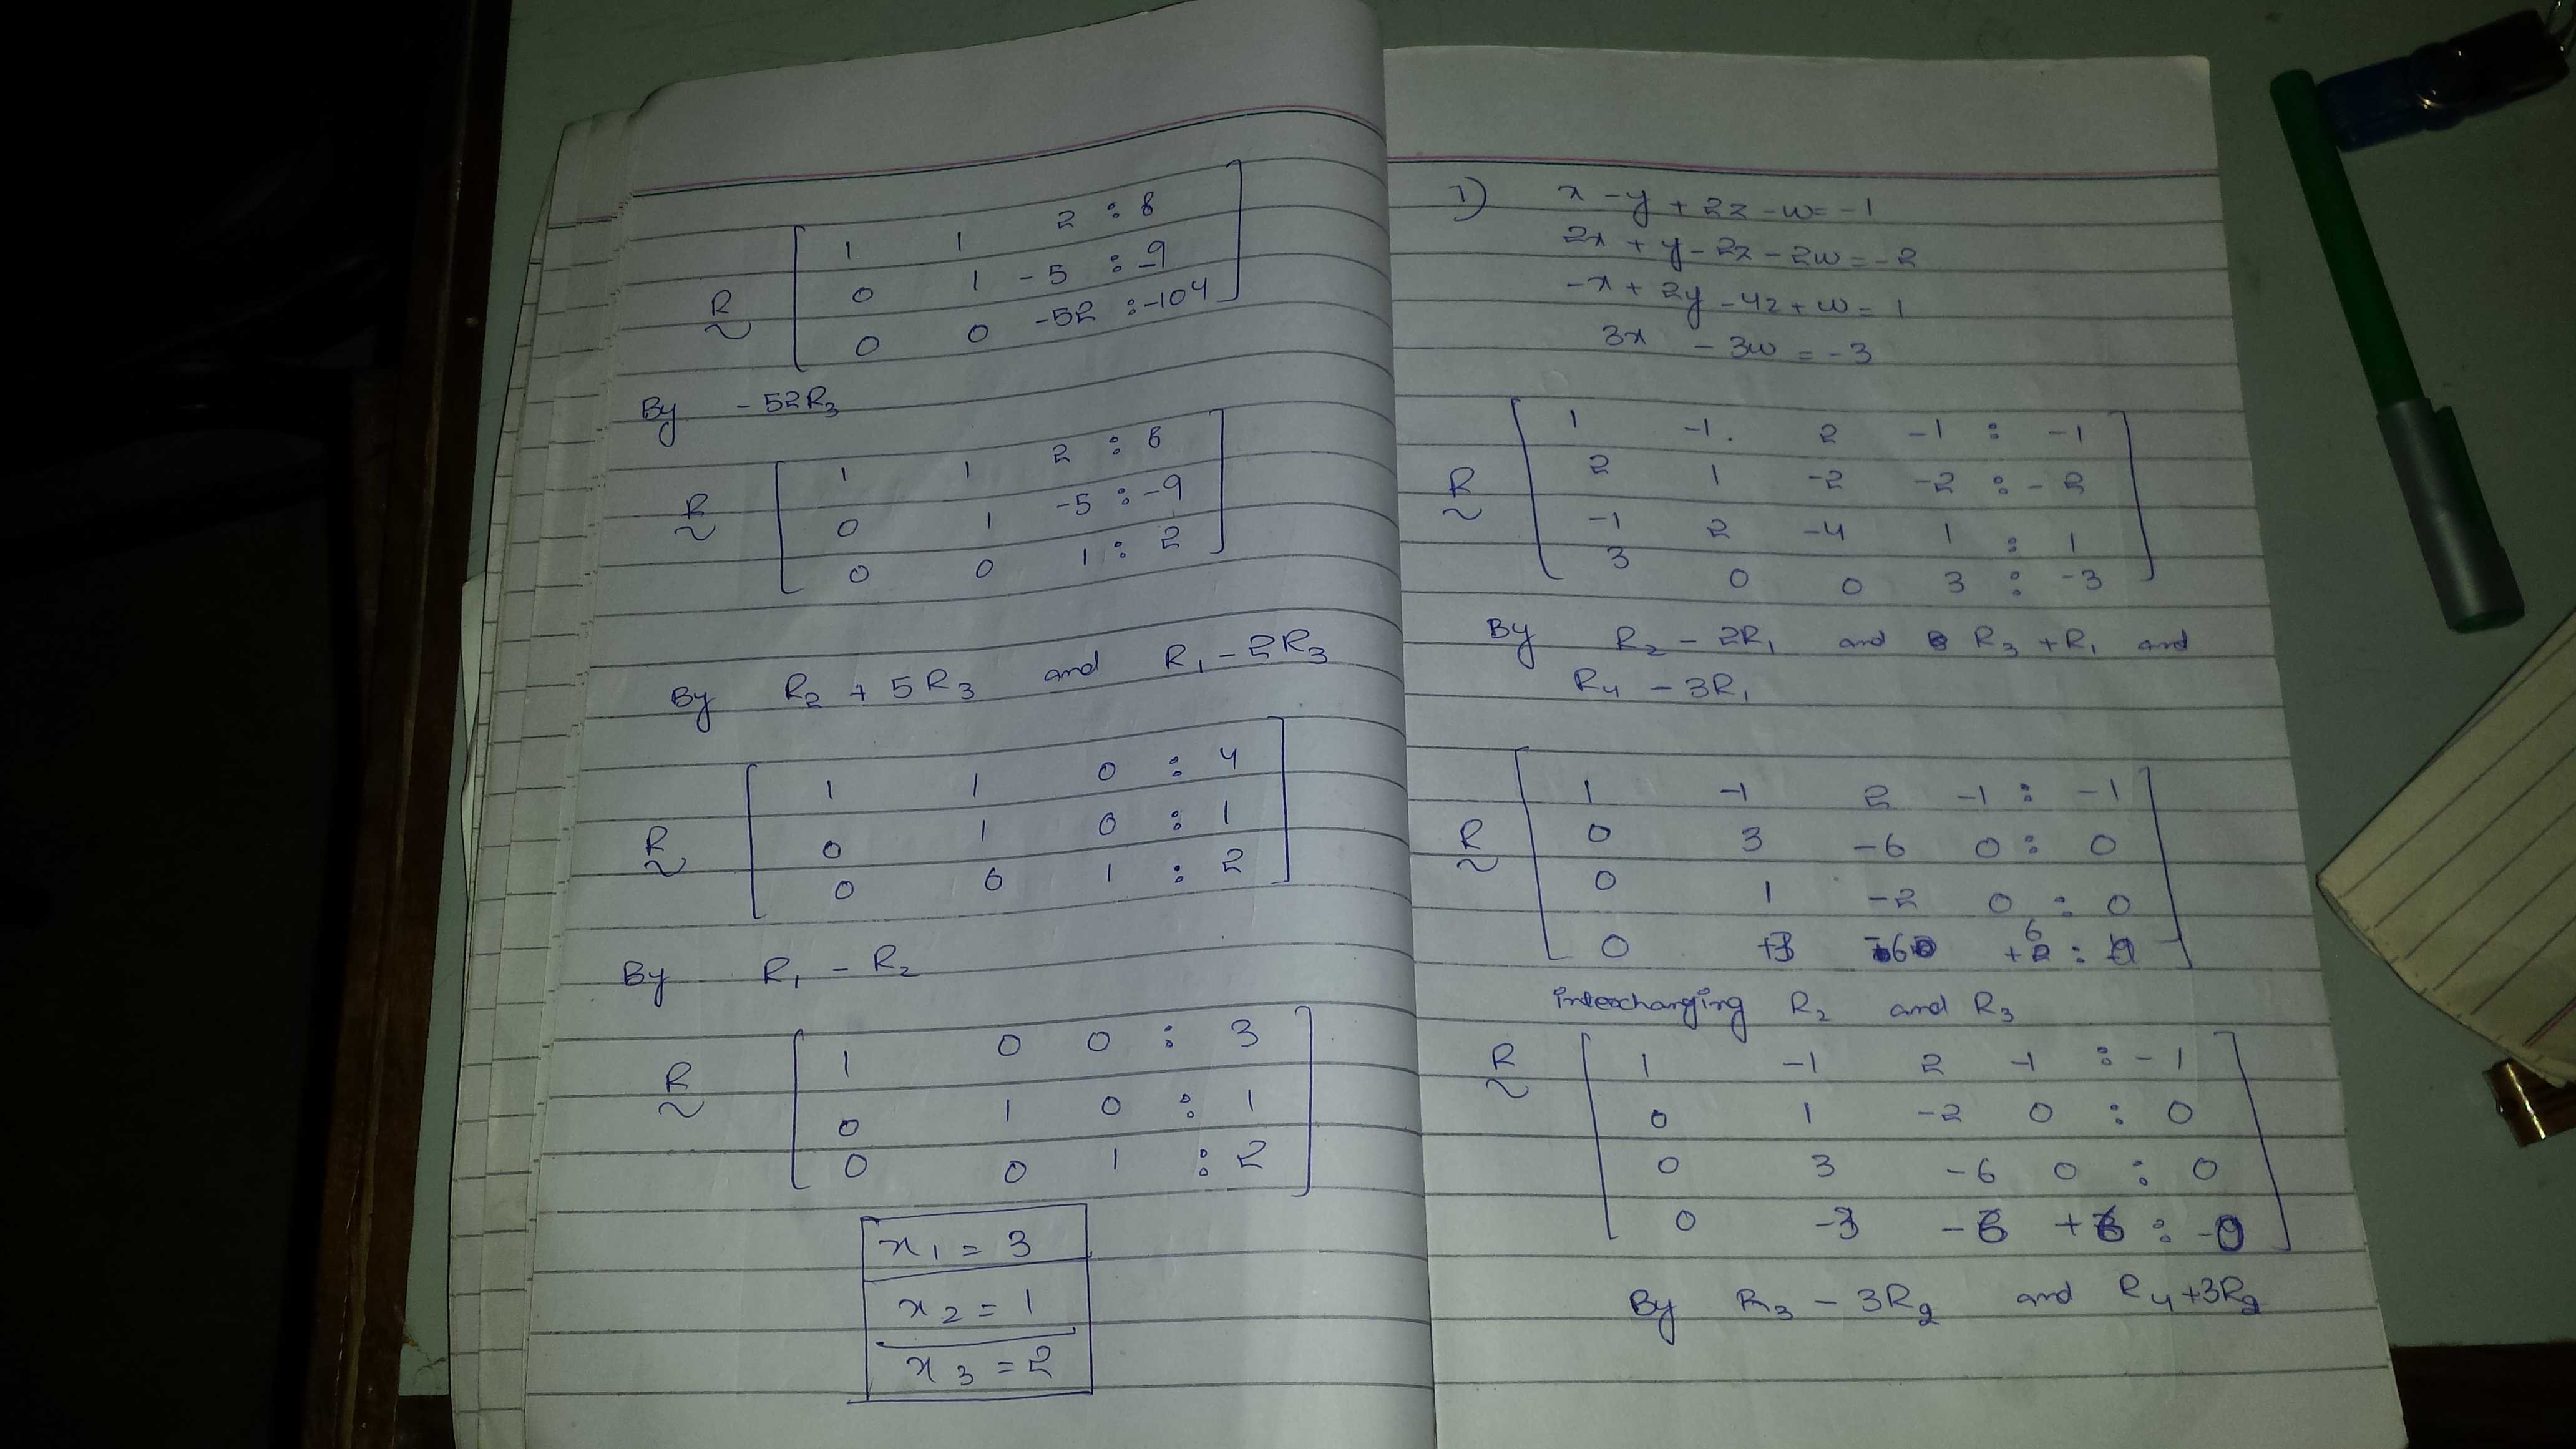 1 1 2 : 8
R ~ 0 1 -5 : -9
0 0 -52 : -104
By -52R3
1 1 2 : 8
R ~ 0 1 -5 : -9
0 0 1 : 2
By R2 + 5R3 and R1 - 2R3
1 1 0 : 4
R ~ 0 1 0 : 1
0 0 1 : 2
By R1 - R2
R ~ 1 0 0 : 3
0 1 0 : 1
0 0 1 : 2
x1 = 3
x2 = 1
x3 = 2
1) x - y + 2z - w = -1
2x + y - 2z - 2w = -2
-x + 2y - 4z + w = 1
3x - 3w = -3
1 -1 2 -1 : -1
R ~ 2 1 -2 -2 : -2
-1 2 -4 1 : 1
3 0 0 3 : -3
By R2 - 2R1 and R3 + R1 and
R4 - 3R1
1 -1 2 -1 : -1
R ~ 0 3 -6 0 : 0
0 1 -2 0 : 0
0 +3 -6 +6 : 0
interchanging R2 and R3
R ~ 1 -1 2 -1 : -1
0 1 -2 0 : 0
0 3 -6 0 : 0
0 -3 -6 +6 : -0
By R3 - 3R2 and R4 + 3R2